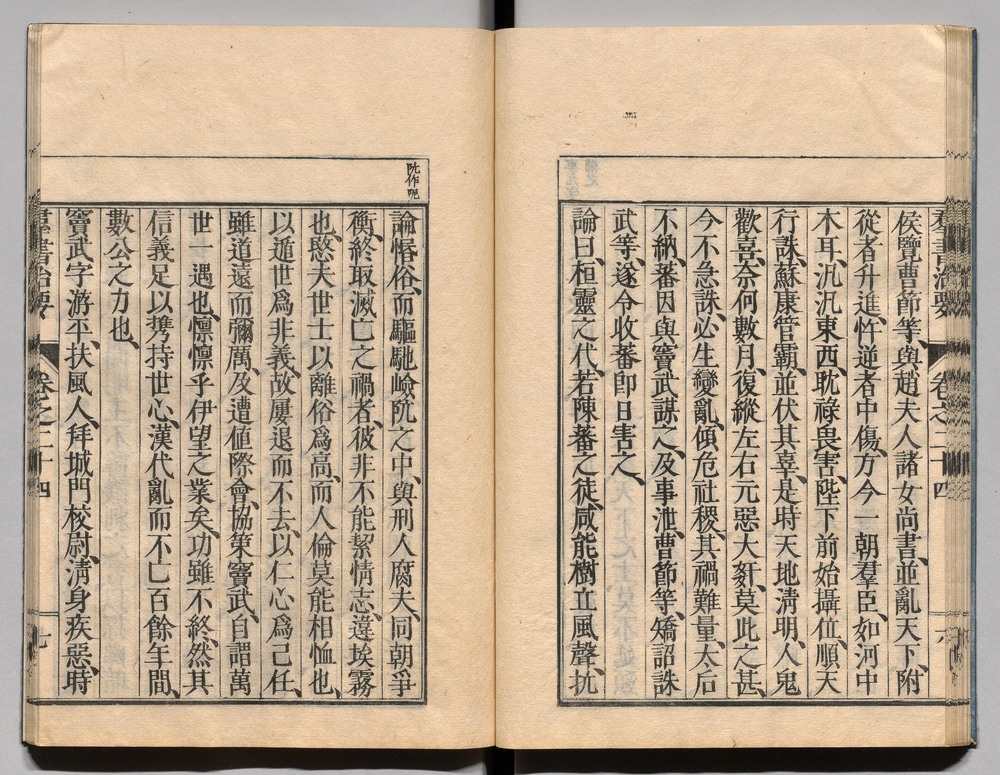 羣書治要 卷之二十四 六
侯覽曹節等、與趙夫人諸女尚書、並亂天下、附
從者升進、忤逆者中傷、方今一朝羣臣、如河中
木耳、汎汎東西、耽祿畏害、陛下前始攝位、順天
行誅、蘇康管霸、並伏其辜、是時天地淸明、人鬼
歡喜、奈何數月、復縱左右元惡大姧、莫此之甚、
今不急誅、必生變亂、傾危社稷、其禍難量、太后
不納、蕃因與竇武謀之、及事泄、曹節等、矯詔誅
武等、遂令收蕃卽日害之、
論曰、桓靈之代、若陳蕃之徒、咸能樹立風聲、抗
阬作呃
論惛俗、而驅馳嶮阬之中、與刑人腐夫、同朝爭
衡、終取滅亡之禍者、彼非不能絜情志、違埃霧
也、愍夫世士以離俗爲高、而人倫莫能相恤也、
以遁世爲非義、故屢退而不去、以仁心爲己任、
雖道遠而彌厲、及遭値際會、協策竇武、自謂萬
世一遇也、懍懍乎伊望之業矣、功雖不終、然其
信義足以携持世心、漢代亂而不亡百餘年間、
數公之力也、
竇武字游平、扶風人、拜城門校尉、淸身疾惡、時
羣書治要 卷之二十四 七